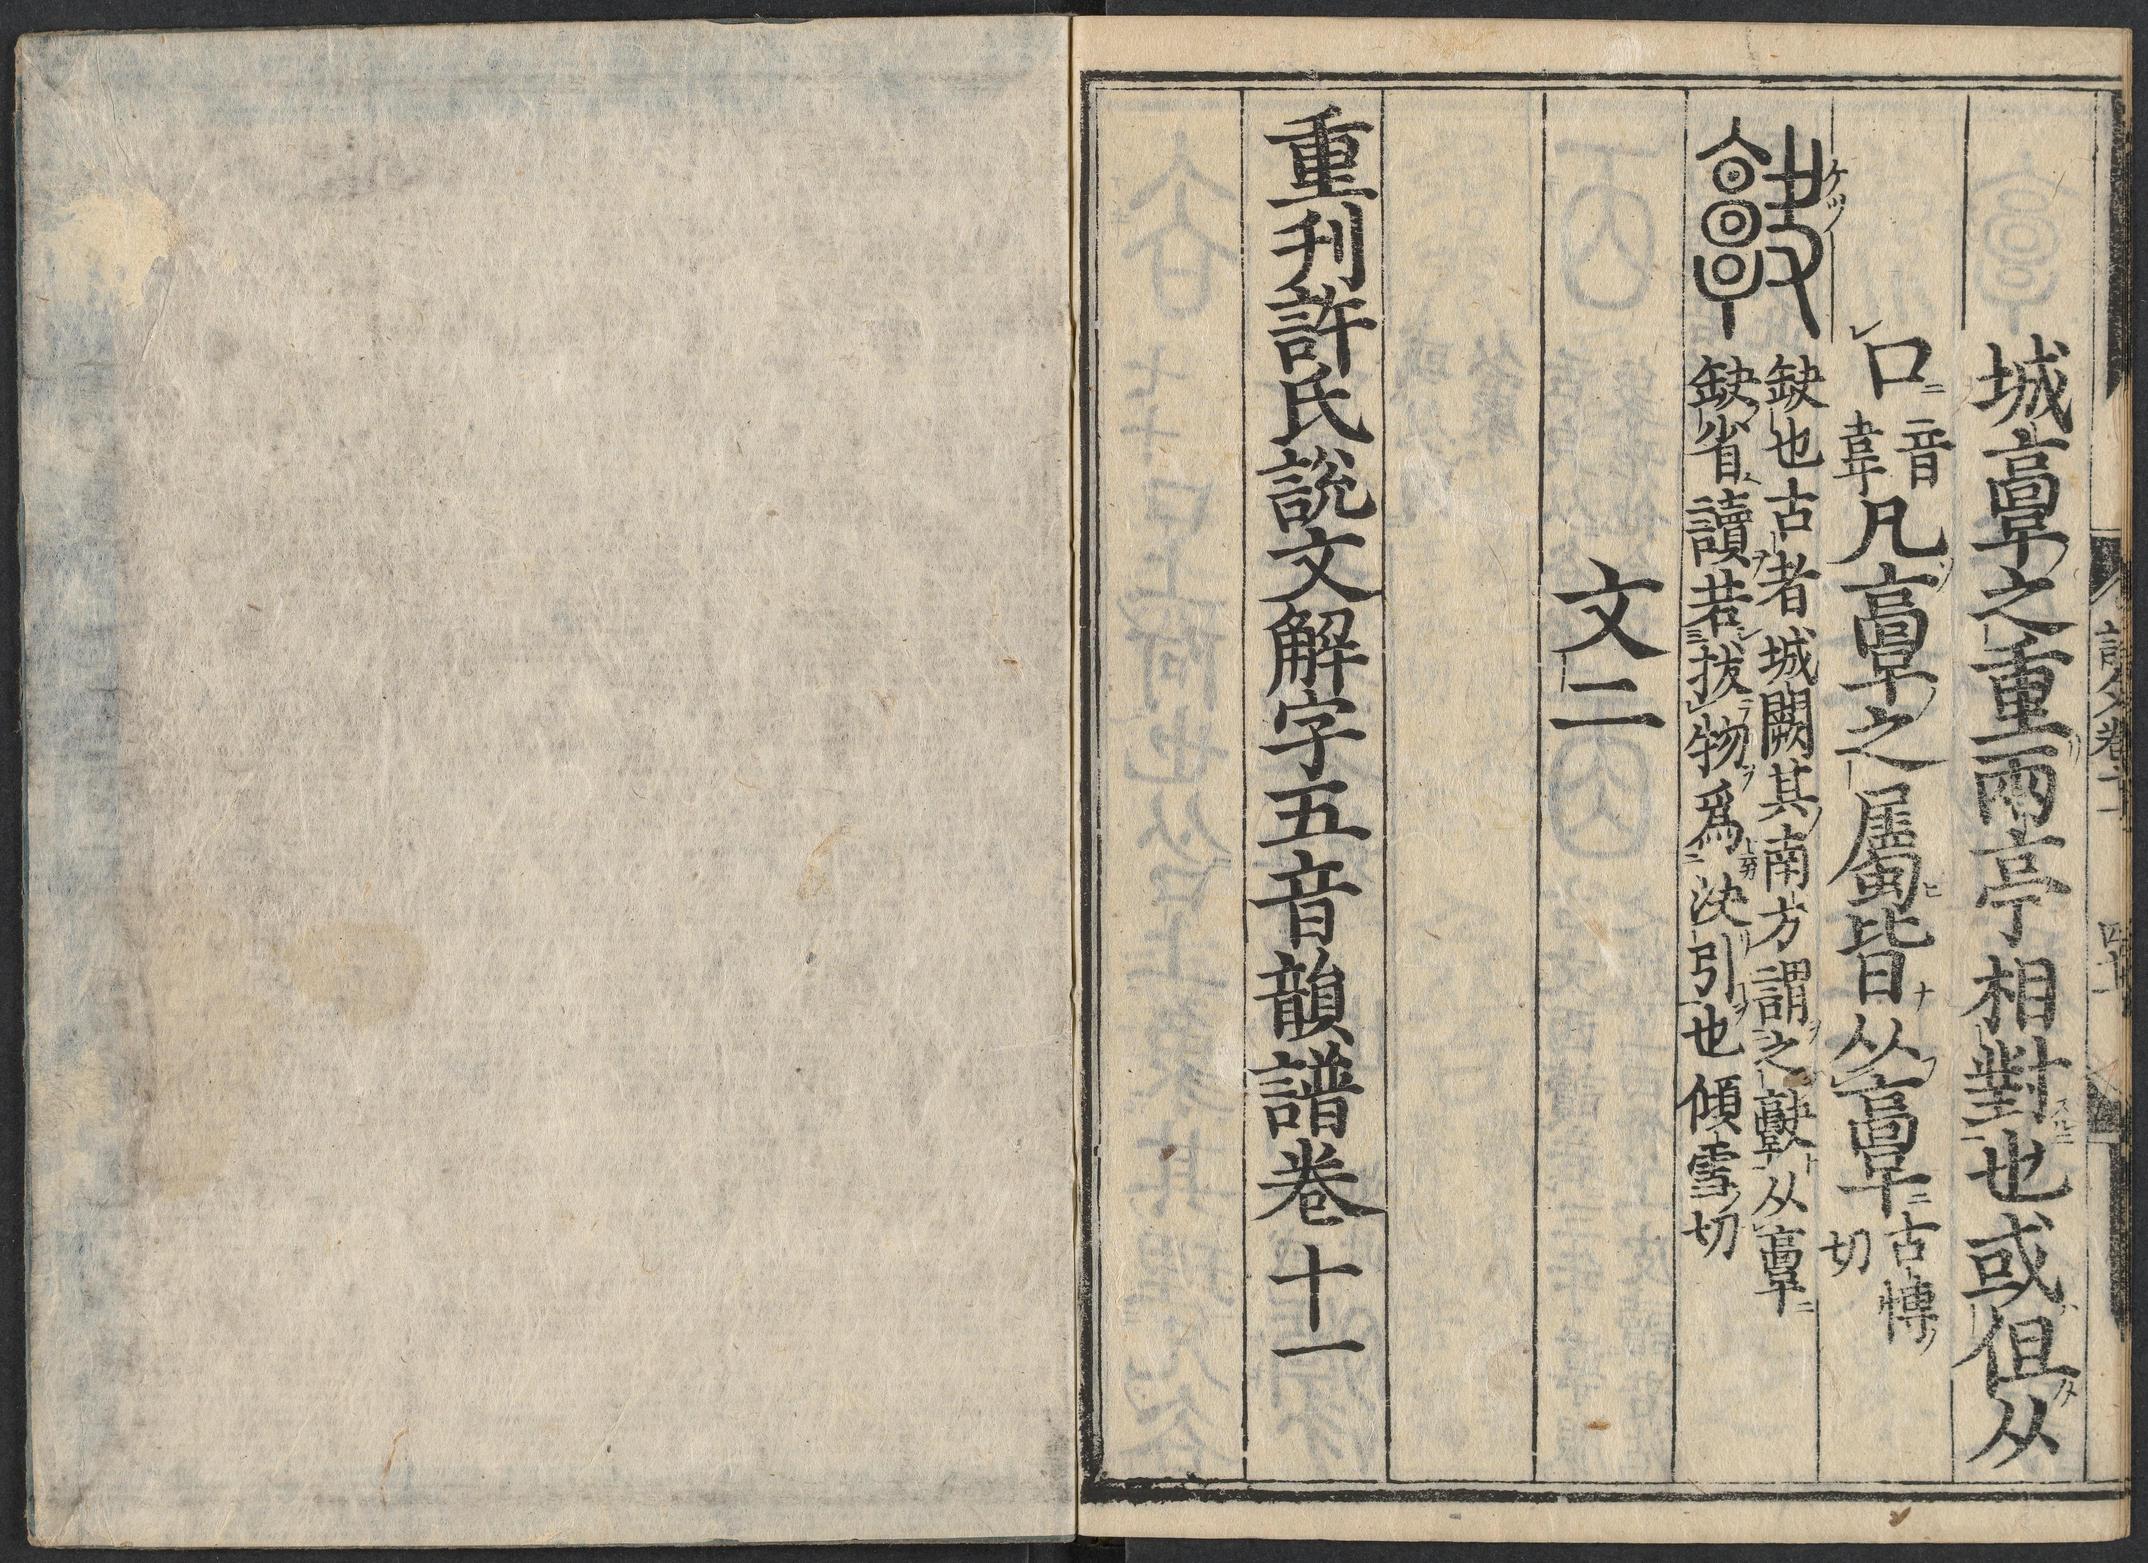 城𩫏之重兩亭相對也或但从
口音韋凡𩫏之屬皆从𩫏古博切
缺也古者城闕其南方謂之𣀴从𩫏
缺省讀若拔物爲決引也傾雪切
文二
重刊許氏說文解字五音韻譜卷十一